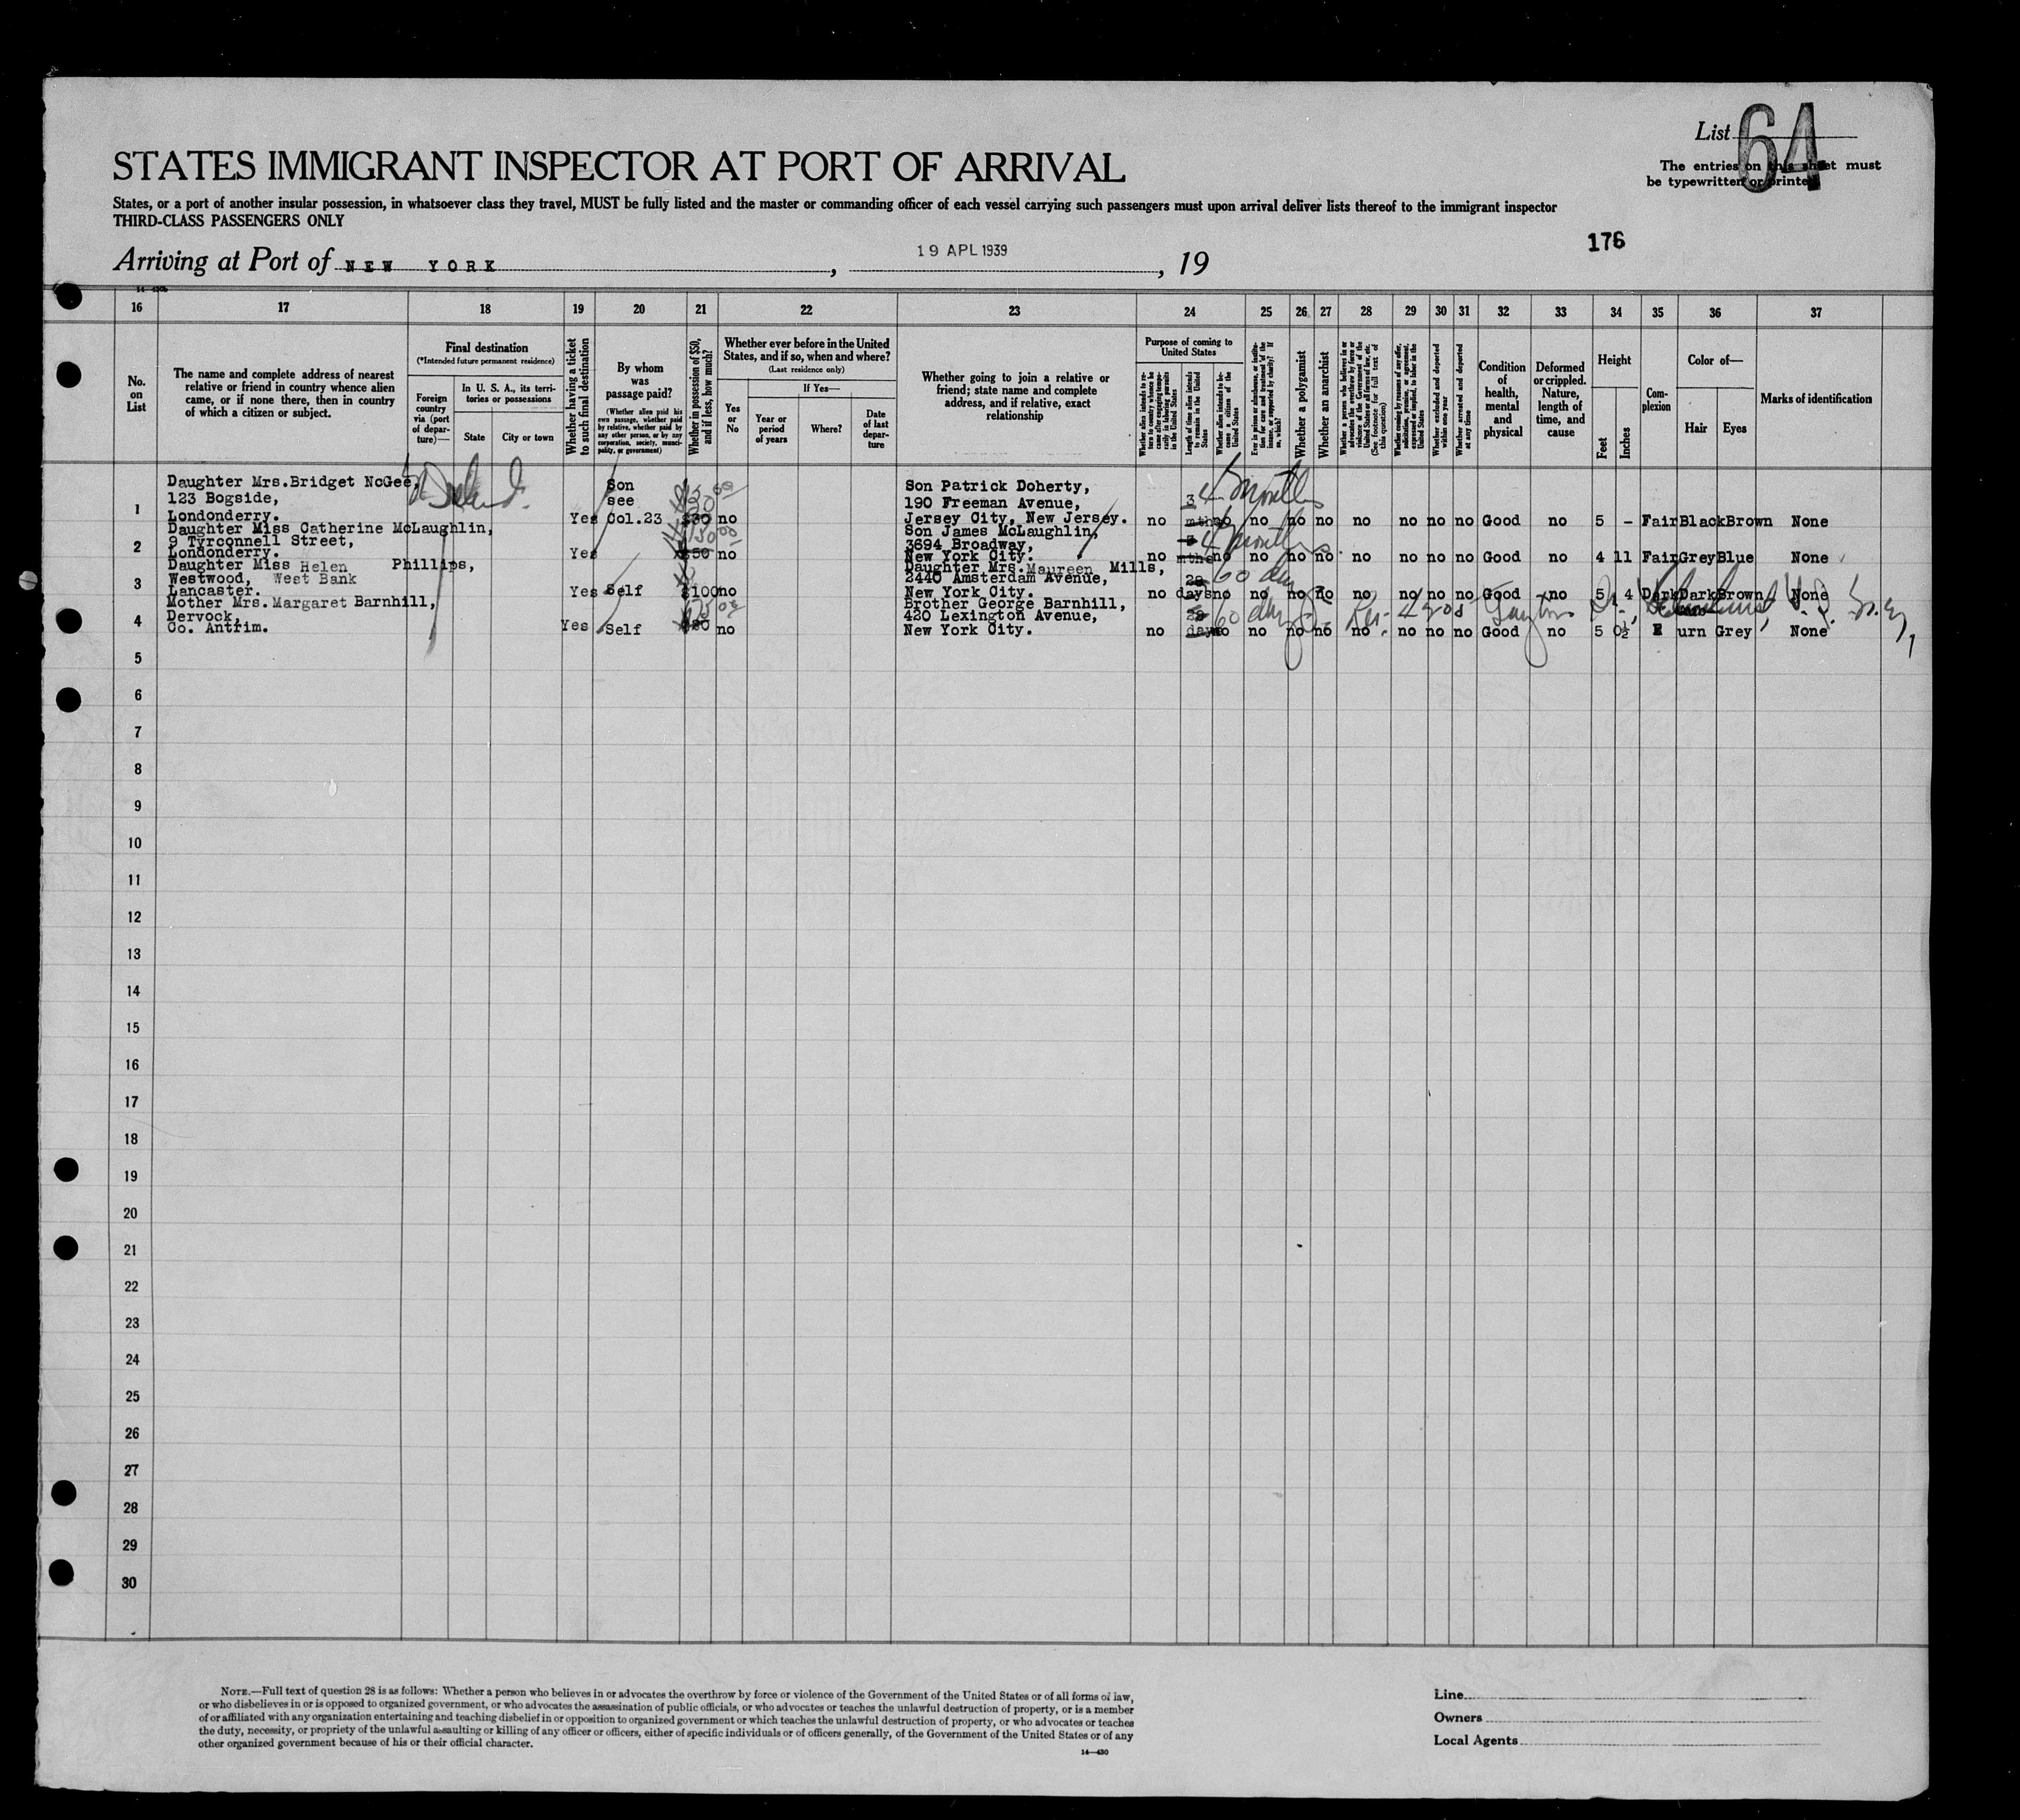 List 64
The entries on this sheet must
be typewritten or printed
STATES IMMIGRANT INSPECTOR AT PORT OF ARRIVAL
States, or a port of another insular possession, in whatsoever class they travel, MUST be fully listed and the master or commanding officer of each vessel carrying such passengers must upon arrival deliver lists thereof to the immigrant inspector
THIRD-CLASS PASSENGERS ONLY
176
Arriving at Port of NEW YORK, 19 APL 1939, 19
16 17 18 19 20 21 22 23 24 25 26 27 28 29 30 31 32 33 34 35 36 37
No.
on
List
The name and complete address of nearest
relative or friend in country whence alien
came, or if none there, then in country
of which a citizen or subject.
Final destination
(*Intended future permanent residence)
Foreign
country
via (port
of depar-
ture)—
In U. S. A., its terri-
tories or possessions
State
City or town
Whether having a ticket
to such final destination
By whom
was
passage paid?
(Whether alien paid his
own passage, whether paid
by relative, whether paid by
any other person, or by any
corporation, society, munici-
pality, or government)
Whether in possession of $50,
and if less, how much?
Whether ever before in the United
States, and if so, when and where?
(Last residence only)
Yes
or
No
If Yes—
Year or
period
of years
Where?
Date
of last
depar-
ture
Whether going to join a relative or
friend; state name and complete
address, and if relative, exact
relationship
Purpose of coming to
United States
Length of time alien intends
to remain in the United
States
Whether alien intends to be-
come a citizen of the
United States
Whether a polygamist
Whether an anarchist
Whether excluded and deported
within one year
Whether arrested and deported
at any time
Condition
of
health,
mental
and
physical
Deformed
or crippled.
Nature,
length of
time, and
cause
Height
Feet
Inches
Com-
plexion
Color of—
Hair
Eyes
Marks of identification
1
Daughter Mrs.Bridget McGee,
123 Bogside,
Londonderry.
Yes
Son
see
Col.23
$30 no
Son Patrick Doherty,
190 Freeman Avenue,
Jersey City, New Jersey.
4 months
no 3 mths no no no no no no no no Good no 5 - Fair Black Brown None
2
Daughter Miss Catherine McLaughlin,
9 Tyrconnell Street,
Londonderry.
Yes
$50 no
Son James McLaughlin,
3694 Broadway,
New York City.
4 months
no 3 mths no no no no no no no no Good no 4 11 Fair Grey Blue None
3
Daughter Miss Helen Phillips,
Westwood, West Bank
Lancaster.
Yes Self $100 no
Daughter Mrs.Maureen Mills,
2440 Amsterdam Avenue,
New York City.
60 days
no 29 days no no no no no no no no Good no 5 4 Dark Dark Brown None
4
Mother Mrs.Margaret Barnhill,
Dervock,
Co. Antrim.
Yes Self no
Brother George Barnhill,
420 Lexington Avenue,
New York City.
60 days
no 29 days no no no no no no no no Good no 5 0½ urn Grey None
5
6
7
8
9
10
11
12
13
14
15
16
17
18
19
20
21
22
23
24
25
26
27
28
29
30
NOTE.—Full text of question 28 is as follows: Whether a person who believes in or advocates the overthrow by force or violence of the Government of the United States or of all forms of law,
or who disbelieves in or is opposed to organized government, or who advocates the assassination of public officials, or who advocates or teaches the unlawful destruction of property, or is a member
of or affiliated with any organization entertaining and teaching disbelief in or opposition to organized government or which teaches the unlawful destruction of property, or who advocates or teaches
the duty, necessity, or propriety of the unlawful assaulting or killing of any officer or officers, either of specific individuals or of officers generally, of the Government of the United States or of any
other organized government because of his or their official character.
14—430
Line
Owners
Local Agents